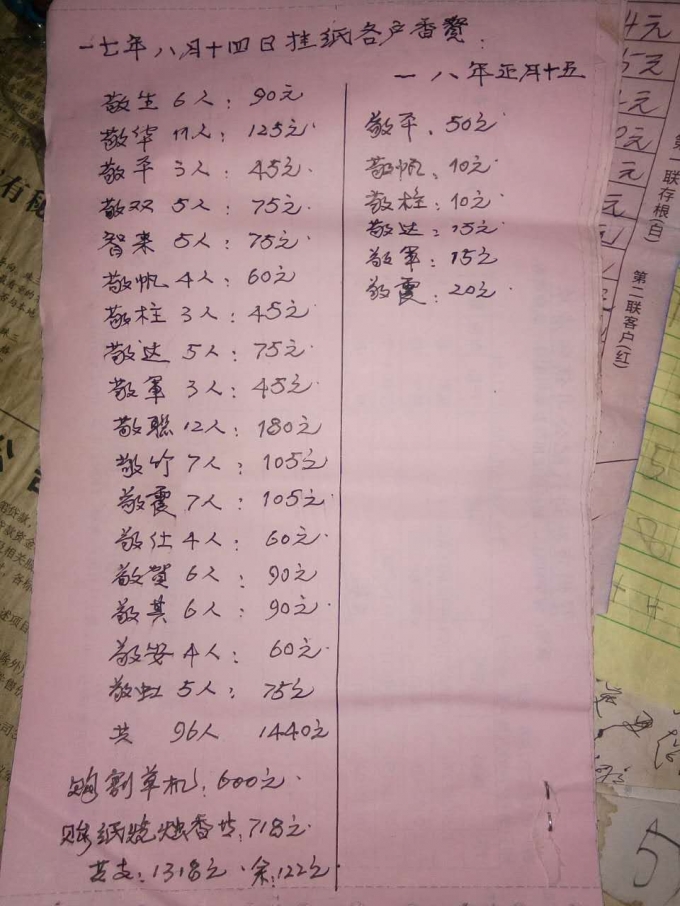 一七年八月十四日挂纸各户香赀:
敬生 6人: 90元
敬华 11人: 125元
敬平 3人: 45元
敬双 5人: 75元
智来 5人: 75元
敬帆 4人: 60元
敬柱 3人: 45元
敬达 5人: 75元
敬軍 3人: 45元
敬聪 12人: 180元
敬竹 7人: 105元
敬震 7人: 105元
敬仕 4人: 60元
敬賀 6人: 90元
敬其 6人: 90元
敬安 4人: 60元
敬虹 5人: 75元
共 96人 1440元
购割草机: 600元
纸烛香共: 718元
共支: 1318元 余: 122元
一八年正月十五
敬平: 50元
敬帆: 10元
敬柱: 10元
敬达: 15元
敬軍: 15元
敬震: 20元
4元
5元
元
元
元
第一联存根(白)
第二联客户(红)
5
8
5